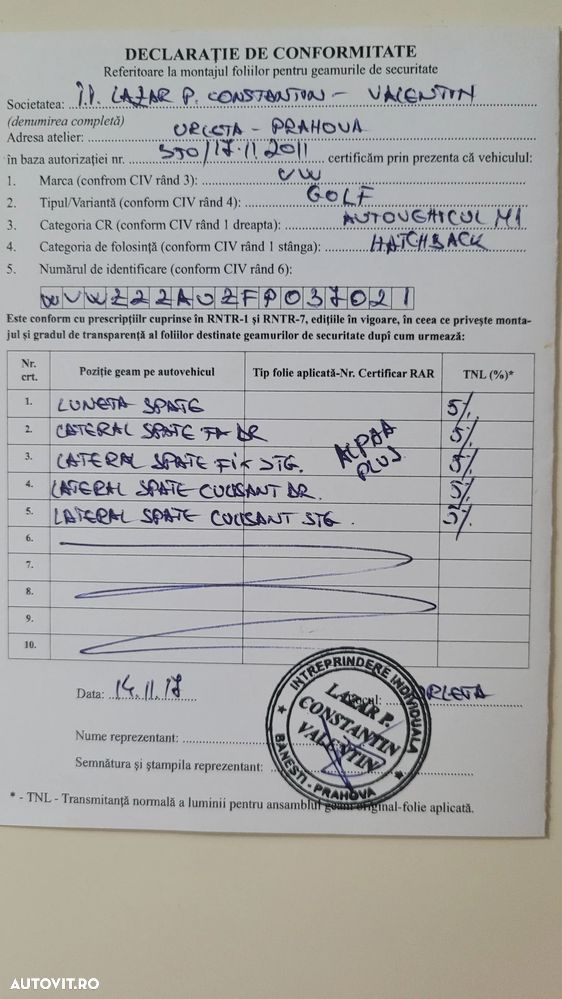 DECLARAȚIE DE CONFORMITATE
Referitoare la montajul foliilor pentru geamurile de securitate
Societatea: Î.I. LAZAR P. CONSTANTIN - VALENTIN
(denumirea completă)
Adresa atelier: URLETA - PRAHOVA
în baza autorizației nr. 550/17.11.2011 certificăm prin prezenta că vehiculul:
1. Marca (confrom CIV rând 3): VW
2. Tipul/Variantă (conform CIV rând 4): GOLF
3. Categoria CR (conform CIV rând 1 dreapta): AUTOVEHICUL M1
4. Categoria de folosință (conform CIV rând 1 stânga): HATCHBACK
5. Numărul de identificare (conform CIV rând 6):
WVWZZZAUZFP037021
Este conform cu prescripțiilr cuprinse în RNTR-1 și RNTR-7, edițiile în vigoare, în ceea ce privește monta-
jul și gradul de transparență al foliilor destinate geamurilor de securitate după cum urmează:
Nr. crt. Poziție geam pe autovehicul Tip folie aplicată-Nr. Certificar RAR TNL (%)*
1. LUNETA SPATE 5%
2. LATERAL SPATE FIX DR 5%
3. LATERAL SPATE FIX STG. 5%
ALPHA PLUS
4. LATERAL SPATE CULISANT DR. 5%
5. LATERAL SPATE CULISANT STG. 5%
6.
7.
8.
9.
10.
Data: 14.11.17 URLETA
Nume reprezentant:
Semnătura și ștampila reprezentant:
INTREPRINDERE INDIVIDUALA
LAZAR P.
CONSTANTIN
VALENTIN
BANESTI - PRAHOVA
* - TNL - Transmitanță normală a luminii pentru ansamblul geam original-folie aplicată.
AUTOVIT.RO